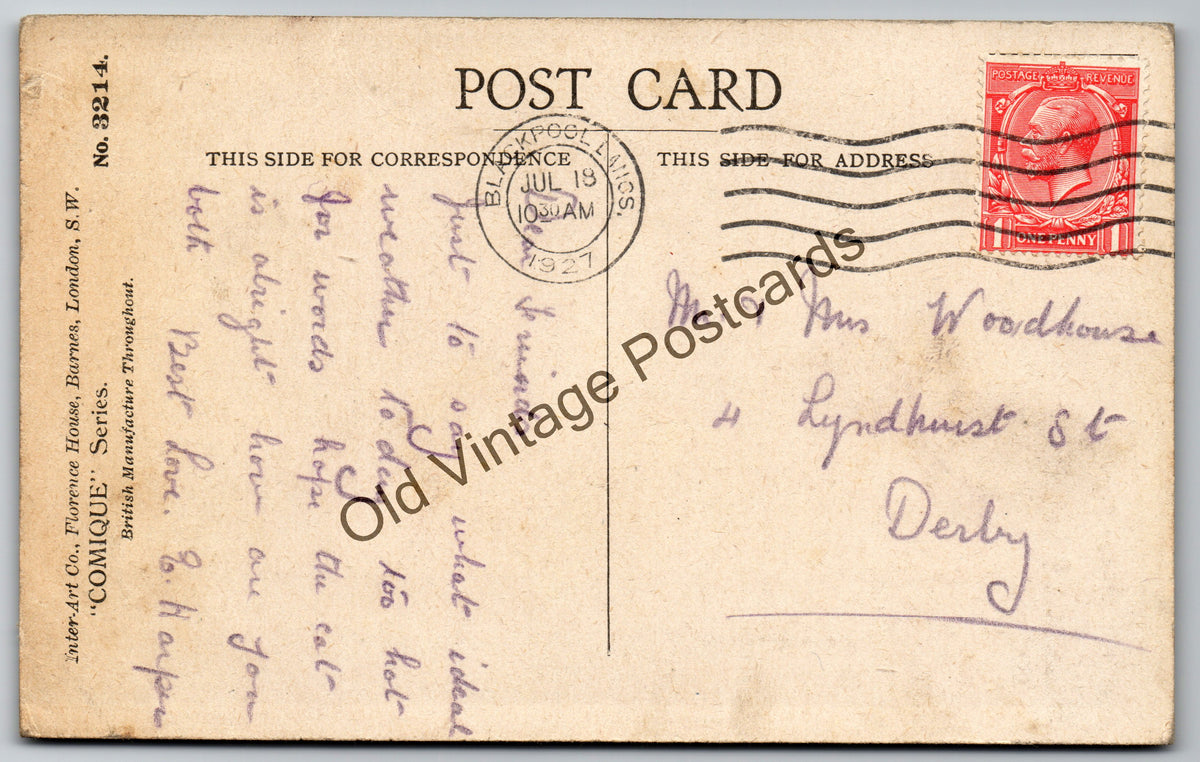 POST CARD
THIS SIDE FOR CORRESPONDENCE
THIS SIDE FOR ADDRESS
BLACKPOOL LANCS.
JUL 18
10 30 AM
1927
POSTAGE REVENUE
1 ONE PENNY 1
Dear Friends
Just to say what ideal
weather to day too hot
for words hope the cat
is alright how are you
both
Best Love. E. Harper
Mr & Mrs Woodhouse
4 Lyndhurst St
Derby
No. 3214.
Inter-Art Co., Florence House, Barnes, London, S.W.
"COMIQUE" Series.
British Manufacture Throughout.
Old Vintage Postcards